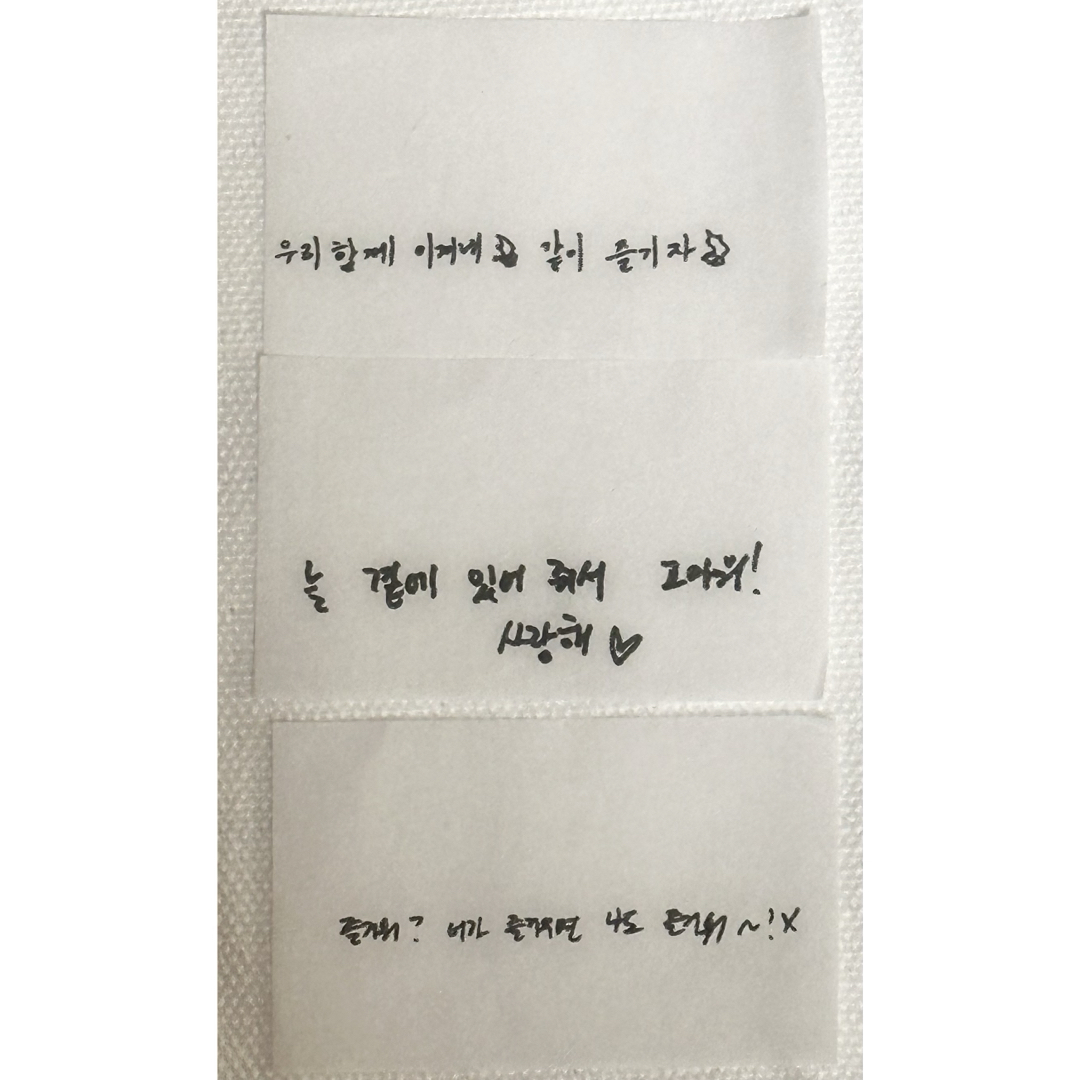 우리 함께 이겨내☆ 같이 즐기자☆
늘 곁에 있어 줘서 고마워!
사랑해 ♡
즐거워? 너가 즐거우면 나도 즐거워~!X